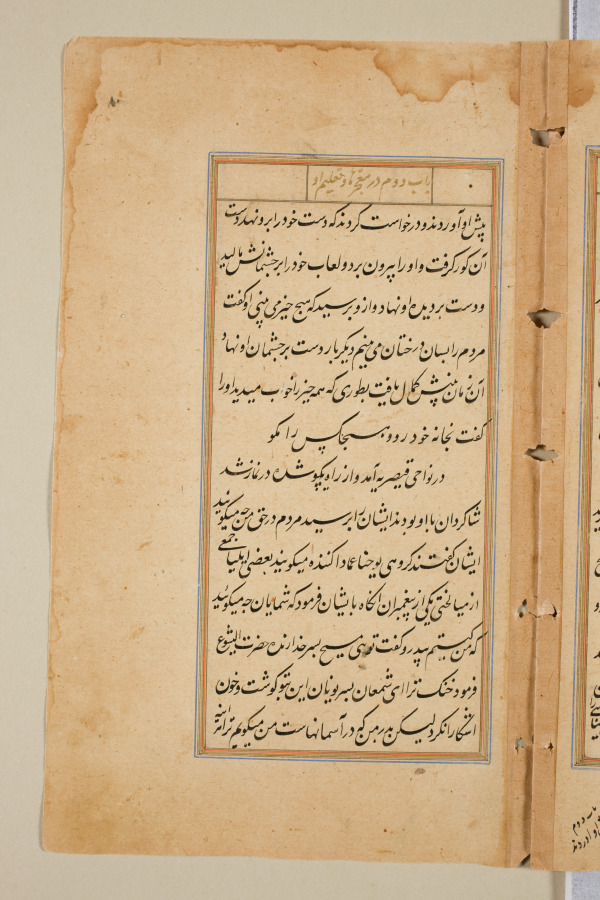 باب دوم در معجزها و تعلیم او
پیش او آوردند و درخواست کردند که دست خود را برو نهد دست
آن کور گرفت و او را بیرون برد و لعاب خود را بر چشمانش مالید
و دست بر دیده او نهاد و ازو پرسید که هیچ چیز می بینی او گفت
مردم را بسان درختان می بینم دیگر بار دست بر چشمان او نهاد
آن زمان بینش کمال یافت بطوری که همه چیز را خوب میدید او را
گفت بخانه خود رو و بهیچکس را مگو
در نواحی قیصریه آمد و از راه یکسو شده در نماز شد
شاکردان با او بودند ایشان را پرسید مردم در حق من چه میگویند
ایشان گفتند گروهی یوحنا عماد کننده میگویند بعضی ایلیا جمعی
از میانختی یکی از پیغمبران آنگاه بایشان فرمود که شمایان چه میگویید
که من کیستم پیدرو گفت توی مسیح پسر خدا زنده حضرت ایشوع
فرمود خنک ترا ای شمعان پسر یونا زان این بتو گوشت و خون
آشکارا نکرد لیکن پدر من که در آسمانهاست من میگویم ترا
باب دوم
او آوردند